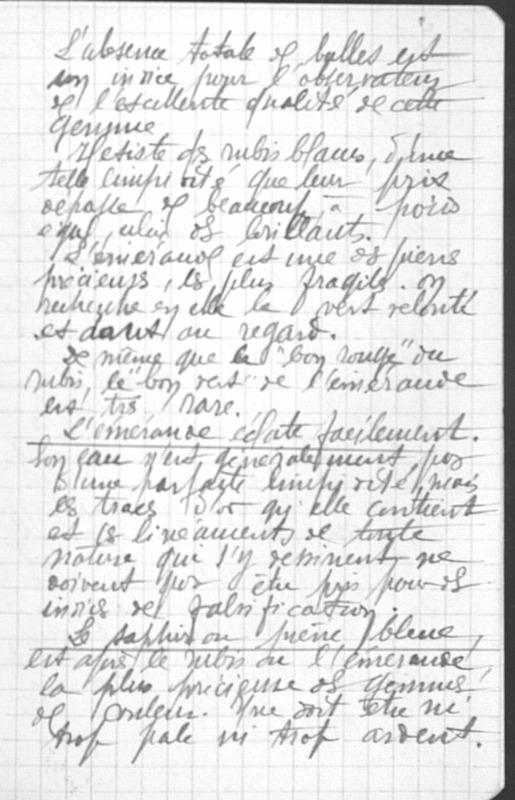 L'absence totale de bulles est
un indice pour l'observateur
de l'excellente qualité de cette
gemme
Il existe des rubis blancs, d'une
telle limpidité que leur prix
dépasse de beaucoup, à poids
égal, celui des brillants.
L'émeraude est une des pierres
précieuses, les plus fragiles. On
recherche en elle le vert velouté
et doux au regard.
De même que le "bon rouge" du
rubis, le "bon vert" de l'émeraude
est très rare.
L'émeraude éclate facilement.
Son eau n'est généralement, pas
d'une parfaite limpidité, mais
les traces d'or qu'elle contient
et les linéaments de toute
nature qui s'y dessinent ne
doivent pas être pris pour des
indices de falsification.
Le saphir ou pierre bleue,
est après le rubis ou l'émeraude,
la plus précieuse des gemmes
de couleur. Il ne doit être ni
trop pale ni trop ardent.